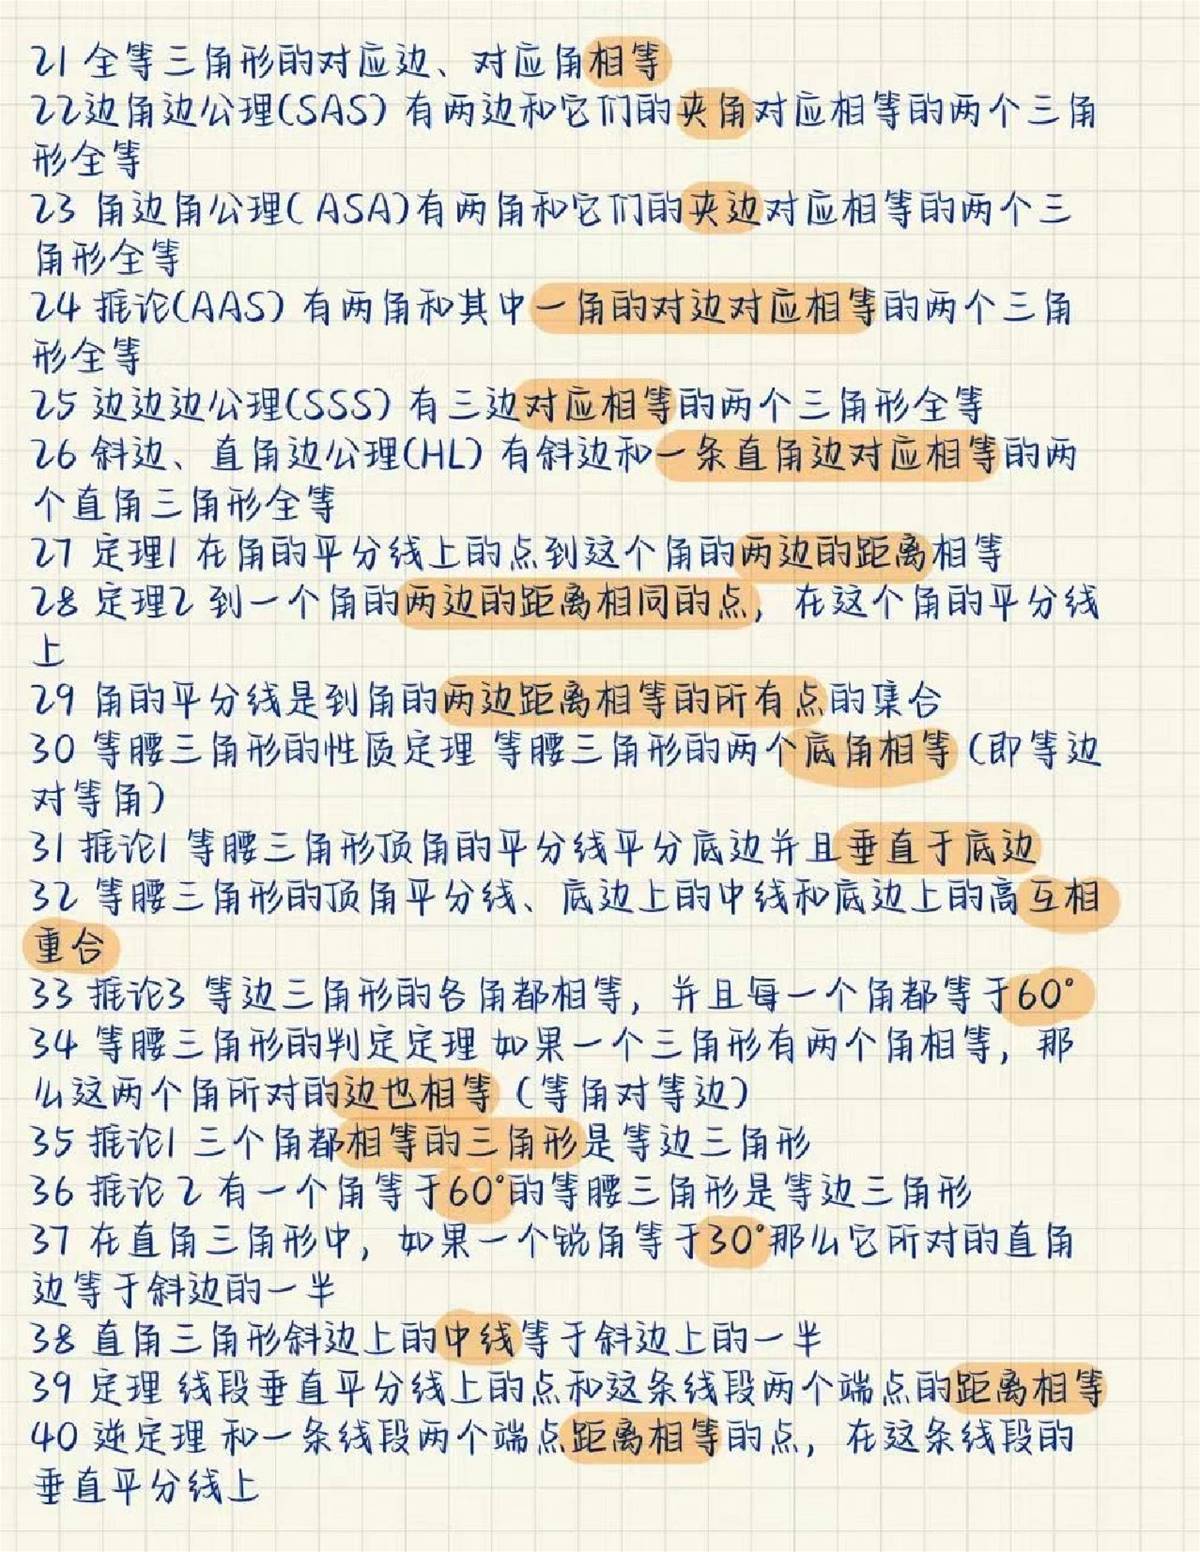 21 全等三角形的对应边、对应角相等
22边角边公理(SAS) 有两边和它们的夹角对应相等的两个三角
形全等
23 角边角公理( ASA)有两角和它们的夹边对应相等的两个三
角形全等
24 推论(AAS) 有两角和其中一角的对边对应相等的两个三角
形全等
25 边边边公理(SSS) 有三边对应相等的两个三角形全等
26 斜边、直角边公理(HL) 有斜边和一条直角边对应相等的两
个直角三角形全等
27 定理1 在角的平分线上的点到这个角的两边的距离相等
28 定理2 到一个角的两边的距离相同的点，在这个角的平分线
上
29 角的平分线是到角的两边距离相等的所有点的集合
30 等腰三角形的性质定理 等腰三角形的两个底角相等 (即等边
对等角）
31 推论1 等腰三角形顶角的平分线平分底边并且垂直于底边
32 等腰三角形的顶角平分线、底边上的中线和底边上的高互相
重合
33 推论3 等边三角形的各角都相等，并且每一个角都等于60°
34 等腰三角形的判定定理 如果一个三角形有两个角相等，那
么这两个角所对的边也相等（等角对等边）
35 推论1 三个角都相等的三角形是等边三角形
36 推论 2 有一个角等于60°的等腰三角形是等边三角形
37 在直角三角形中，如果一个锐角等于30°那么它所对的直角
边等于斜边的一半
38 直角三角形斜边上的中线等于斜边上的一半
39 定理 线段垂直平分线上的点和这条线段两个端点的距离相等
40 逆定理 和一条线段两个端点距离相等的点，在这条线段的
垂直平分线上